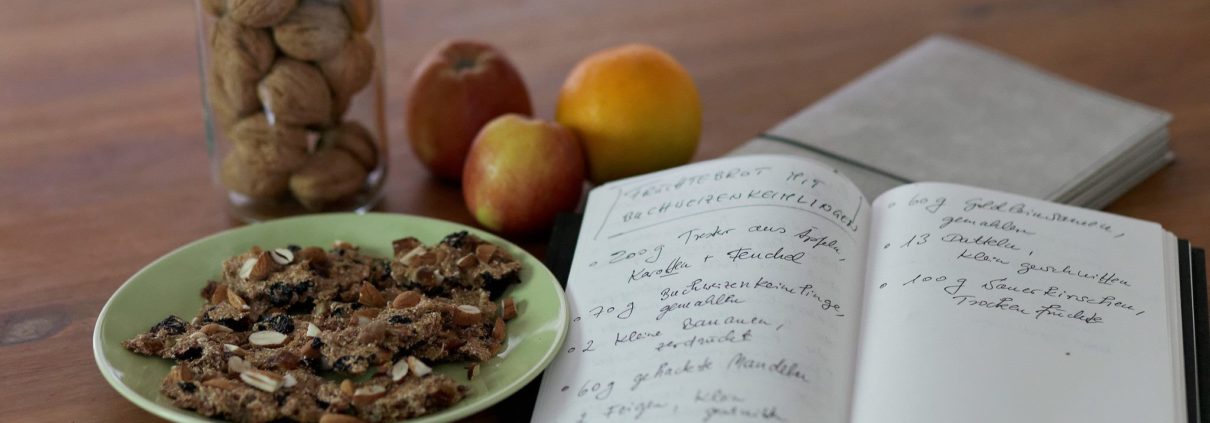 FRÜCHTEBROT MIT
BUCHWEIZENKEIMLINGEN
200g Trester aus Äpfeln,
Karotten + Fenchel
70 g Buchweizenkeimlinge,
gemahlen
2 kleine Bananen,
zerdrückt
60g gehackte Mandeln
2 Feigen, klein
geschnitten
60g Goldleinsamen,
gemahlen
13 Datteln,
klein geschnitten
100g Sauerkirschen,
Trockenfrüchte